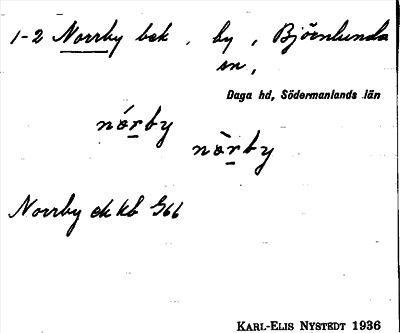 1-2 Norrby bek , by , Björnlunda
sn,
Daga hd, Södermanlands län
nórby
nòrby
Norrby ek kb G66
KARL-ELIS NYSTEDT 1936